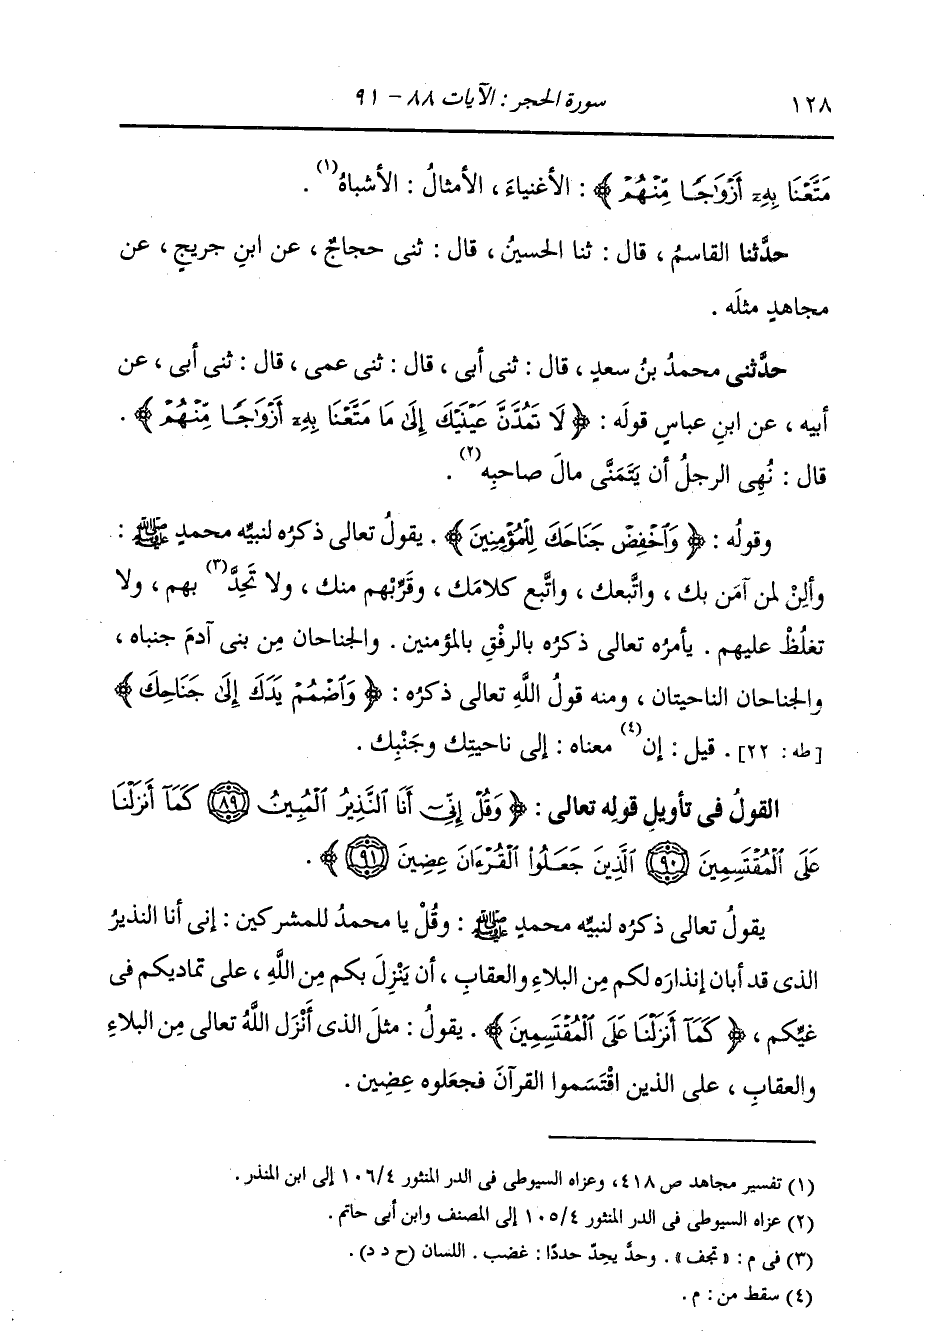 ١٢٨ سورة الحجر : الآيات ٨٨ - ٩١
مَتَّعْنَا بِهِۦٓ أَزْوَٰجًا مِّنْهُمْ ﴾ : الأغنياءَ ، الأمثالُ : الأشباهُ(١) .
حدَّثنا القاسمُ ، قال : ثنا الحسينُ ، قال : ثنى حجاجٌ ، عن ابنِ جريجٍ ، عن
مجاهدٍ مثلَه .
حدَّثنى محمدُ بنُ سعدٍ ، قال : ثنى أبى ، قال : ثنى عمى ، قال : ثنى أبى ، عن
أبيه ، عن ابنِ عباسٍ قولَه : ﴿ لَا تَمُدَّنَّ عَيْنَيْكَ إِلَىٰ مَا مَتَّعْنَا بِهِۦٓ أَزْوَٰجًا مِّنْهُمْ ﴾ .
قال : نُهِى الرجلُ أن يَتَمَنَّى مالَ صاحبِه(٢) .
وقولُه : ﴿ وَٱخْفِضْ جَنَاحَكَ لِلْمُؤْمِنِينَ ﴾ . يقولُ تعالى ذكرُه لنبيِّه محمدٍ ﷺ :
وأَلِنْ لمن آمَن بك ، واتَّبعك ، واتَّبع كلامَك ، وقَرِّبْهم منك ، ولا تَحِدَّ(٣) بهم ، ولا
تغلُظْ عليهم . يأمرُه تعالى ذكرُه بالرفْقِ بالمؤمنين . والجناحان مِن بنى آدمَ جنباه ،
والجناحان الناحيتان ، ومنه قولُ اللَّهِ تعالى ذكرُه : ﴿ وَٱضْمُمْ يَدَكَ إِلَىٰ جَنَاحِكَ ﴾
[طه : ٢٢] . قيل : إن(٤) معناه : إلى ناحيتِك وجَنْبِك .
القولُ فى تأويلِ قولِه تعالى : ﴿ وَقُلْ إِنِّىٓ أَنَا ٱلنَّذِيرُ ٱلْمُبِينُ ٨٩ كَمَآ أَنزَلْنَا
عَلَى ٱلْمُقْتَسِمِينَ ٩٠ ٱلَّذِينَ جَعَلُوا۟ ٱلْقُرْءَانَ عِضِينَ ٩١ ﴾ .
يقولُ تعالى ذكرُه لنبيِّه محمدٍ ﷺ : وقُلْ يا محمدُ للمشركين : إنى أنا النذيرُ
الذى قد أبان إنذارَه لكم مِن البلاءِ والعقابِ ، أن يَنْزِلَ بكم مِن اللَّهِ ، على تماديكم فى
غيِّكم ، ﴿ كَمَآ أَنزَلْنَا عَلَى ٱلْمُقْتَسِمِينَ ﴾ . يقولُ : مثلَ الذى أَنْزَل اللَّهُ تعالى مِن البلاءِ
والعقابِ ، على الذين اقْتَسَموا القرآنَ فجعَلوه عِضِين .
(١) تفسير مجاهد ص ٤١٨ ، وعزاه السيوطى فى الدر المنثور ١٠٦/٤ إلى ابن المنذر .
(٢) عزاه السيوطى فى الدر المنثور ١٠٥/٤ إلى المصنف وابن أبى حاتم .
(٣) فى م : «تجف» . وحدَّ يحِدّ حددًا : غضب . اللسان (ح د د) .
(٤) سقط من : م .